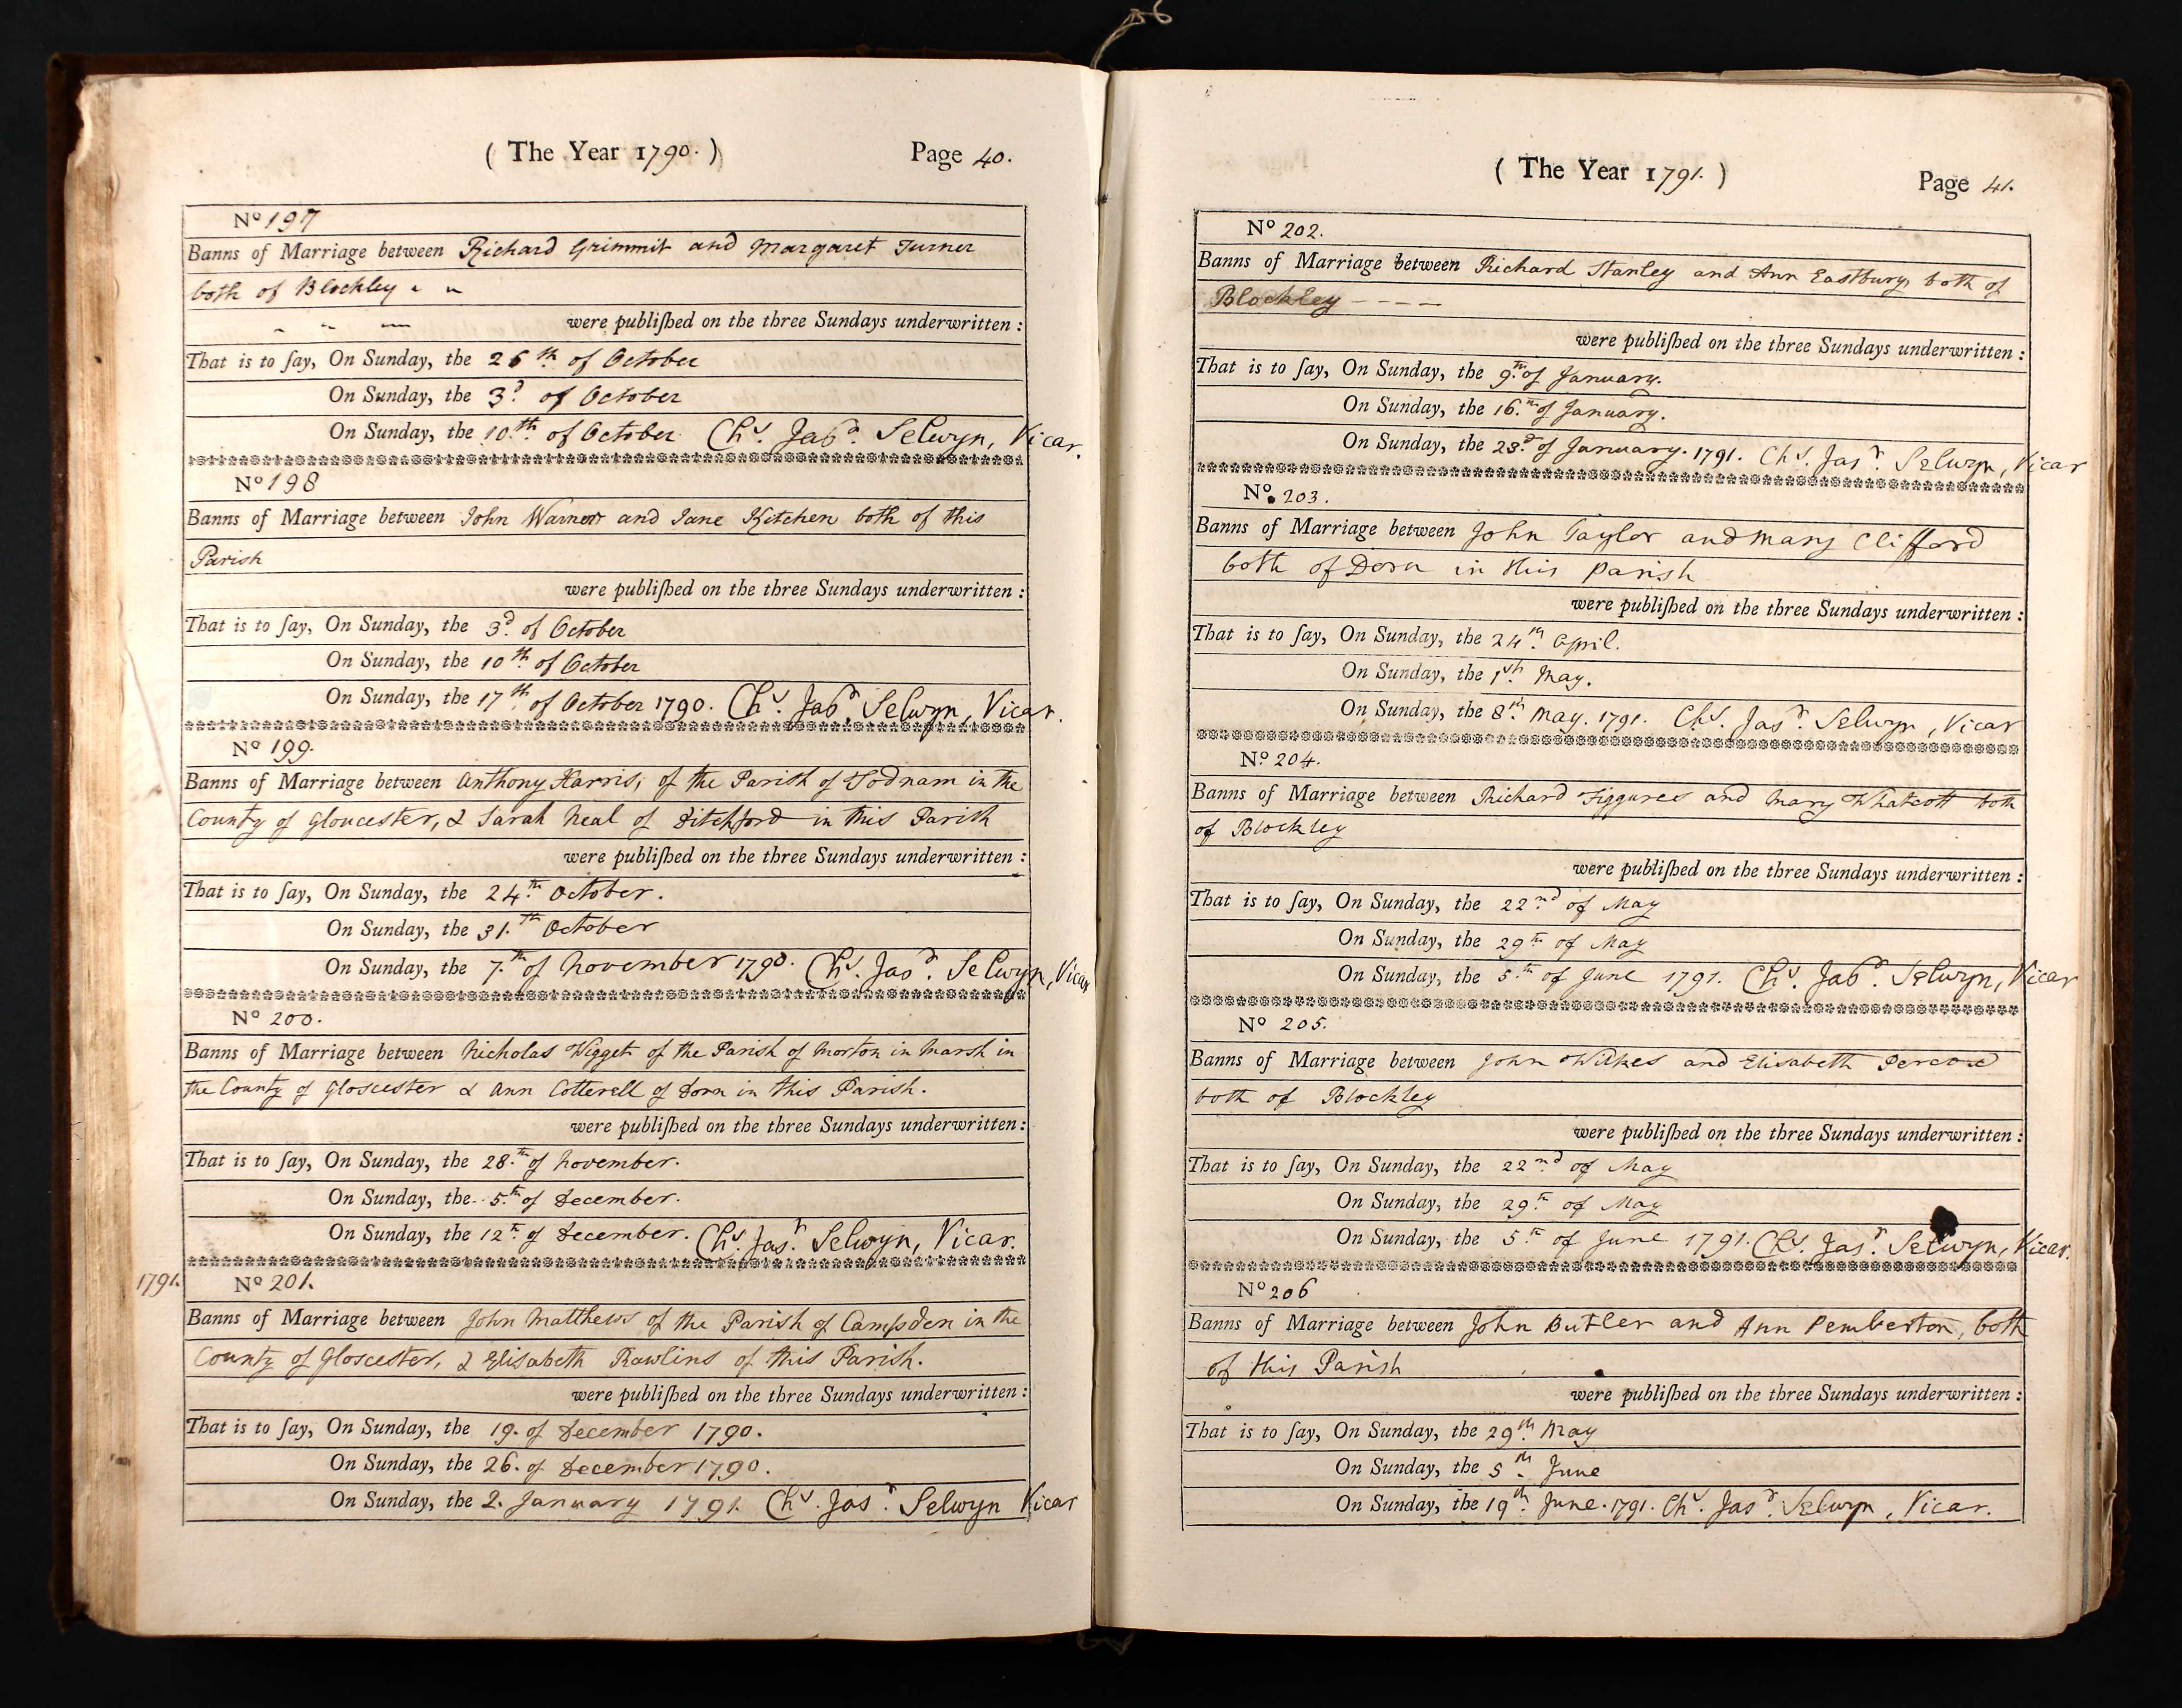 ( The Year 1790. )
Page 40.
No 197
Banns of Marriage between Richard Grimmit and Margaret Turner
both of Blockley " "
were publiſhed on the three Sundays underwritten :
That is to ſay, On Sunday, the 26th of October
On Sunday, the 3d of October
On Sunday, the 10th of October Chs. Jasr. Selwyn, Vicar.
No 198
Banns of Marriage between John Warner and Jane Kitchen both of this
Parish
were publiſhed on the three Sundays underwritten :
That is to ſay, On Sunday, the 3d. of October
On Sunday, the 10th of October
On Sunday, the 17th of October 1790. Chs. Jasr. Selwyn, Vicar.
No 199.
Banns of Marriage between Anthony Harris, of the Parish of Todnam in the
County of Gloucester, & Sarah Neal of Ditchford in this Parish
were publiſhed on the three Sundays underwritten :
That is to ſay, On Sunday, the 24th October.
On Sunday, the 31.th October
On Sunday, the 7.th of November 1790. Chs. Jasr. Selwyn, Vicar
No 200.
Banns of Marriage between Nicholas Wigget of the Parish of Morton in Marsh in
the County of Gloscester & Ann Cotterell of Dorn in this Parish.
were publiſhed on the three Sundays underwritten :
That is to ſay, On Sunday, the 28.th of November.
On Sunday, the 5.th of December.
On Sunday, the 12th of December. Chs. Jasr. Selwyn, Vicar.
1791.
No 201.
Banns of Marriage between John Matthews of the Parish of Campsden in the
County of Gloscester, & Elisabeth Rawlins of this Parish.
were publiſhed on the three Sundays underwritten :
That is to ſay, On Sunday, the 19. of December 1790.
On Sunday, the 26. of December 1790.
On Sunday, the 2. January 1791. Chs. Jasr. Selwyn Vicar
( The Year 1791. )
Page 41.
No 202.
Banns of Marriage between Richard Stanley and Ann Eastbury both of
Blockley - - - -
were publiſhed on the three Sundays underwritten :
That is to ſay, On Sunday, the 9th of January.
On Sunday, the 16.th of January.
On Sunday, the 23d of January. 1791. Chs. Jasr. Selwyn, Vicar
No. 203.
Banns of Marriage between John Taylor and Mary Clifford
both of Dorn in this Parish
were publiſhed on the three Sundays underwritten :
That is to ſay, On Sunday, the 24th. April.
On Sunday, the 1st. May.
On Sunday, the 8th. May. 1791. Chs. Jasr. Selwyn, Vicar
No. 204.
Banns of Marriage between Richard Figgures and Mary Whatcott both
of Blockley
were publiſhed on the three Sundays underwritten :
That is to ſay, On Sunday, the 22nd of May
On Sunday, the 29th of May
On Sunday, the 5th of June 1791. Chs. Jasr. Selwyn, Vicar
No 205.
Banns of Marriage between John Wilkes and Elisabeth
both of Blockley
were publiſhed on the three Sundays underwritten :
That is to ſay, On Sunday, the 22nd of May
On Sunday, the 29th of May
On Sunday, the 5th of June 1791. Chs. Jasr. Selwyn, Vicar.
No 206
Banns of Marriage between John Butler and Ann Pemberton, both
of this Parish
were publiſhed on the three Sundays underwritten :
That is to ſay, On Sunday, the 29th. May
On Sunday, the 5th. June
On Sunday, the 19th. June. 1791. Chs. Jasr. Selwyn, Vicar.